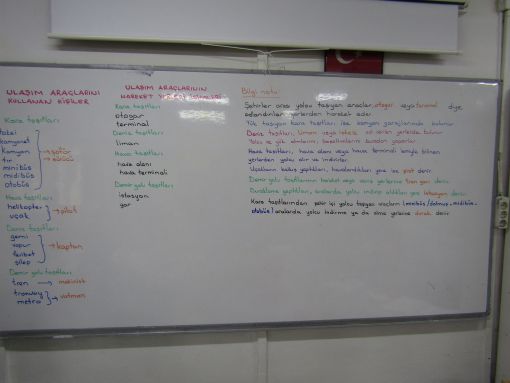 ULAŞIM ARAÇLARINI
KULLANAN KİŞİLER
Kara taşıtları
taksi
kamyonet
kamyon
tır
minibüs
midibüs
otobüs
şoför
sürücü
Hava taşıtları
helikopter
uçak
pilot
Deniz taşıtları
gemi
vapur
feribot
şilep
kaptan
Demir yolu taşıtları
tren → makinist
tramvay
metro
vatman
ULAŞIM ARAÇLARININ
HAREKET
Kara taşıtları
otogar
terminal
Deniz taşıtları
liman
Hava taşıtları
hava alanı
hava terminali
Demir yolu taşıtları
istasyon
gar
Bilgi notu
Şehirler arası yolcu taşıyan araçlar, otogar veya terminal diye
adlandırılan yerlerden hareket eder.
Yük taşıyan kara taşıtları ise kamyon garajlarında bulunur.
Deniz taşıtları, liman veya iskele adı verilen yerlerde bulunur.
Yolcu ve yük alımlarını, boşaltımlarını buradan yaparlar.
Hava taşıtları, hava alanı veya hava terminali ismiyle bilinen
yerlerden yolcu alır ve indirirler.
Uçakların kalkış yaptıkları, havalandıkları yere ise pist denir.
Demir yolu taşıtlarının hareket veya varış yerlerine tren garı denir.
Duraklama yaptıkları, aralarda yolcu indirip aldıkları yere istasyon denir.
Kara taşıtlarından şehir içi yolcu taşıyan araçların (minibüs/dolmuş-midibüs-
otobüs) aralarda yolcu indirme ya da alma yerlerine durak denir.